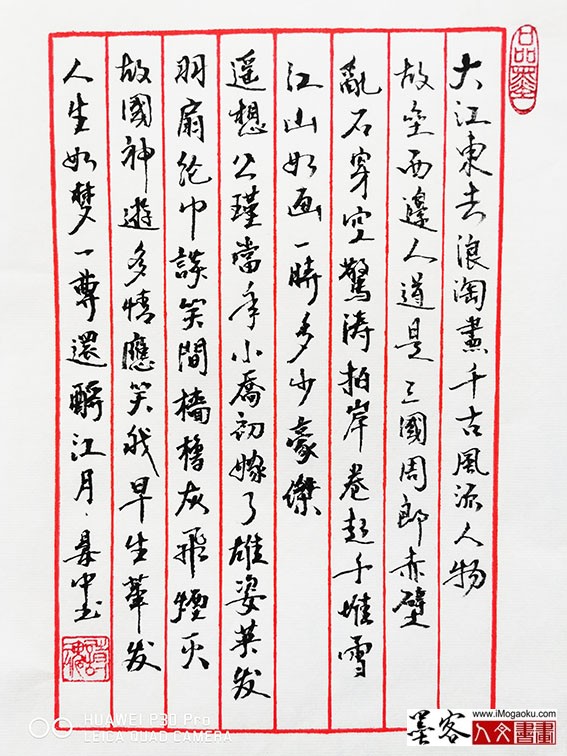 大江東去浪淘盡千古風流人物
故垒西邊人道是三國周郎赤壁
亂石穿空驚涛拍岸卷起千堆雪
江山如画一時多少豪傑
遥想公瑾當年小喬初嫁了雄姿英发
羽扇纶巾談笑間檣櫓灰飛煙灭
故國神遊多情應笑我早生華发
人生如梦一尊還酹江月
HUAWEI P30 Pro
LEICA QUAD CAMERA
www.iMogaoku.com
墨客
人文書畫